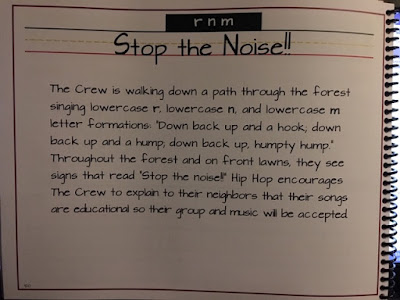 r n m
Stop the Noise!!
The Crew is walking down a path through the forest
singing lowercase r, lowercase n, and lowercase m
letter formations: "Down back up and a hook; down
back up and a hump; down back up, humpty hump."
Throughout the forest and on front lawns, they see
signs that read "Stop the noise!!" Hip Hop encourages
The Crew to explain to their neighbors that their songs
are educational so their group and music will be accepted.